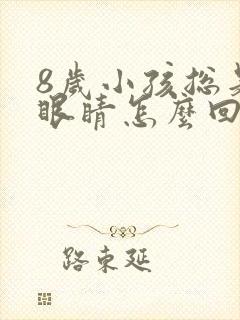 8歲小孩總是
眼睛怎麼回
路東延